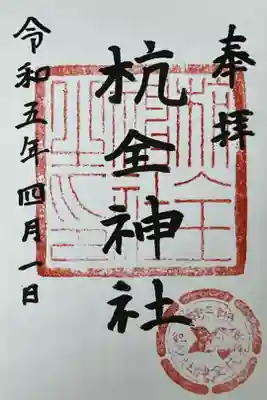 奉拝
杭全神社
令和五年四月一日